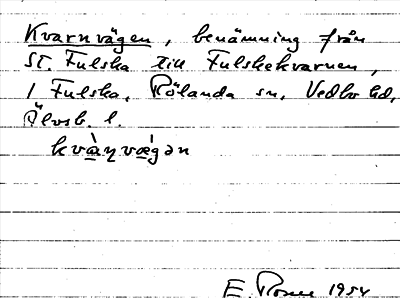 Kvarnvägen, benämning från
St. Fulska till Fulskekvarnen,
i Fulska. Rölanda sn, Vedbo hd,
Älvsb. l.
kvàɳvæ̀gən
E. Rosen 1954